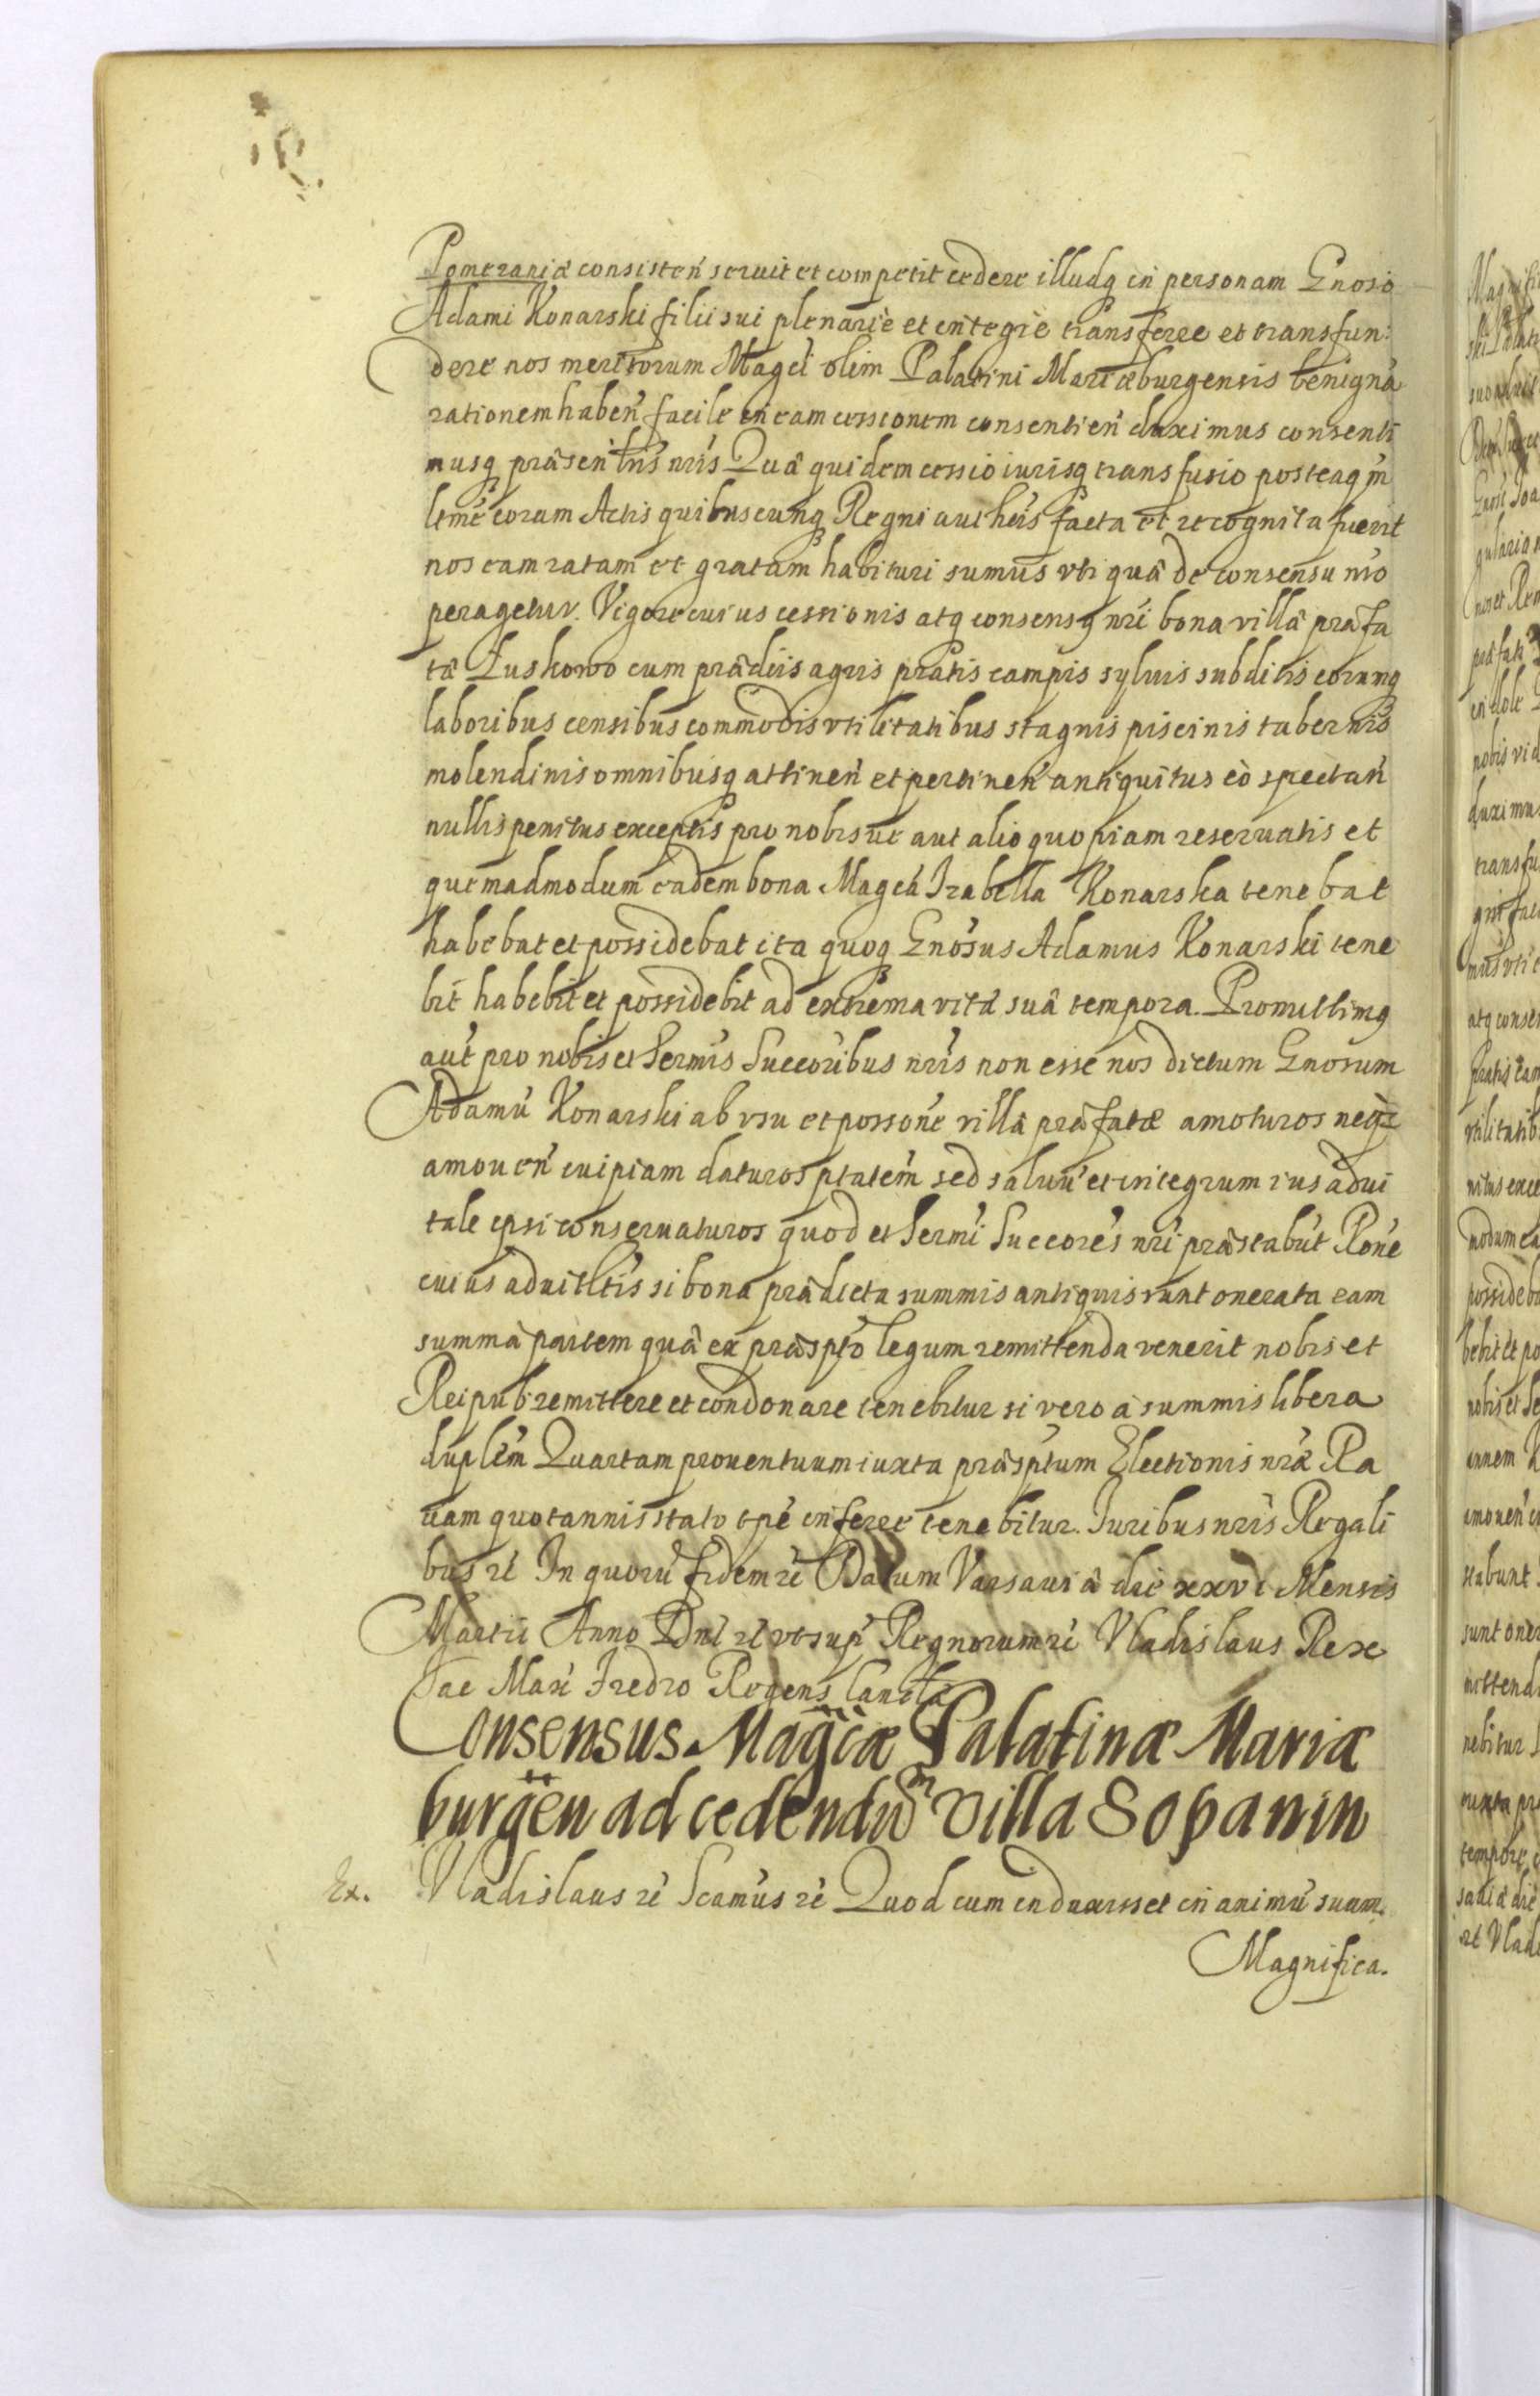 Pomeraniæ consisten̄ seruit et competit cedere illudq́ in personam Gnosi
Adami Konarski filii sui plenariè et integrè transferre et transfun:
dere nos meritorum Magci olim Palatini Mariæburgensis benignã
rationem haben̄ facile in eam cessionem consentien̄ duximus consenti
musq́ præsentn̄s nr̄is Quæ quidem cessio iurisq́ transfusio posteaq́m
ltimè coram Actis quibuscunq́ Regni autheis facta et recognita fuerit
nos eam ratam et gratam habituri sumus vti quæ de consensu nr̄o
peragetur. Vigore cuius cessionis atq́ consensq nr̄i bona villæ præfa
tæ Łuskowo cum prædiis agris pratis campis syluis subditis eorumq́
laboribus censibus commodis vtilitatibus stagnis piscinis tabernis
molendinis omnibusq́ attinen̄ et pertinen̄ antiquitus eò spectan̄
nullis penitus exceptis pro nobisue aut alio quopiam reseruatis et
quemadmodum eadem bona Magca Izabella Konarska tenebat
habebat et possidebat ita quoq́ Gnosus Adamus Konarski tene
bit habebit et possidebit ad extrema vitæ suæ tempora. Promittimq
aut̄ pro nobis et Sermis Succoribus nr̄is non esse nos dictum Gnosum
Adamū Konarski ab vsu et possone villæ præfatæ amoturos neq́z
amouen̄ cuipiam daturos ptatem̄ sed saluū et integrum ius adui
tale ipsi conseruaturos quod et Sermi Succores nr̄i præstabūt Rone
cuius aduitltis si bona prædicta summis antiquis sunt onerata eam
summæ partem quæ ex præspto legum remittenda venerit nobis et
Reipub: remittere et condonare tenebitur si vero à summis libera
duplem̄ Quartam prouentuum iuxta præsptum Electionis nr̄æ Ra
uam quotannis stato tpe inferre tenebitur. Iuribus nr̄is Regali
bus rē In quorū fidem rē Datum Varsauiæ die xxvi Mensis
Martii Anno Dni rē vt supr̄ Regnorum rē Vladislaus Rex
Jac Max̄ Fredro Regens Canclæ
Consensus Magcæ Palatinæ Mariæ
burgen̄ ad cedendū villã Sopanin
Ex. Vladislaus rē Scamus rē Quod cum induxisset in animū suum
Magnifica.